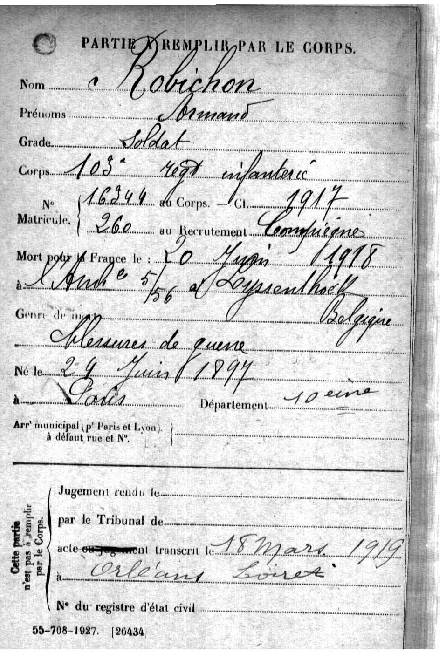 PARTIE À REMPLIR PAR LE CORPS.
Nom Robichon
Prénoms Armand
Grade Soldat
Corps 103e regt infanterie
N° Matricule. { 16344 au Corps. — Cl. 1917
260 au Recrutement Compiègne
Mort pour la France le : 20 Juin 1918
à l'Amb ce 5/56 à
Genre de mort Belgique
blessures de guerre
Né le 24 Juin 1897
à Paris Département 10eme
Arrt municipal (pr Paris et Lyon),
à défaut rue et N°.
Cette partie
n'est pas à remplir
par le Corps.
Jugement rendu le
par le Tribunal de
acte ou jugement transcrit le 18 Mars 1919
à Orléans Loiret
N° du registre d'état civil
55-708-1927. [26434